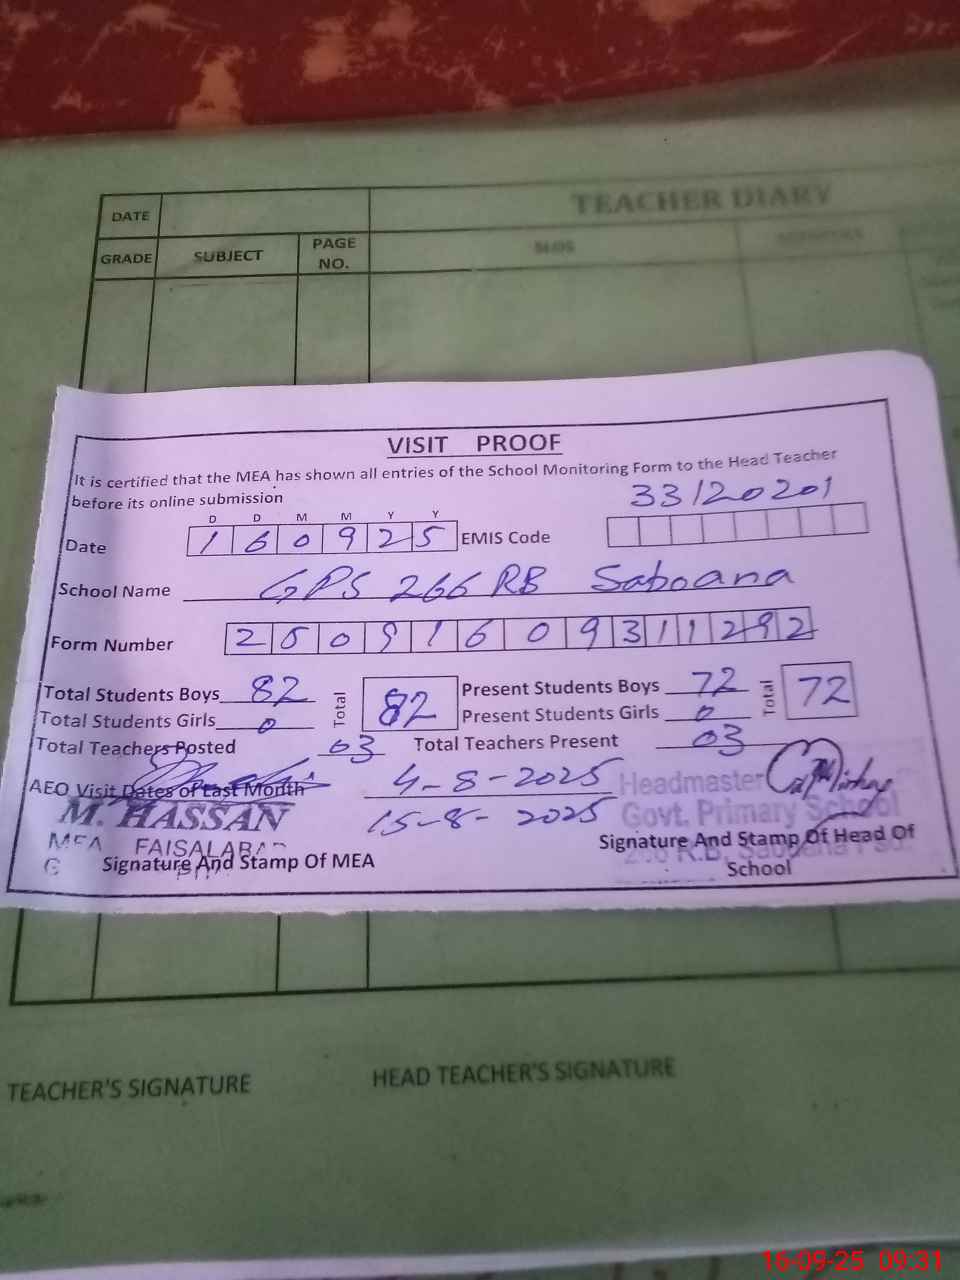 TEACHER DIARY
DATE
GRADE SUBJECT PAGE NO. SLOS
VISIT PROOF
It is certified that the MEA has shown all entries of the School Monitoring Form to the Head Teacher
before its online submission
33120201
D D M M Y Y
Date 1 6 0 9 2 5 EMIS Code
School Name GPS 266 RB Saboana
Form Number 2 5 0 9 1 6 0 9 3 1 1 2 9 2
Total Students Boys 82 Total 82 Present Students Boys 72 Total 72
Total Students Girls 0 Present Students Girls 0
Total Teachers Posted 03 Total Teachers Present 03
AEO Visit Dates of Last Month 4-8-2025 Headmaster
M. HASSAN 15-8-2025 Govt. Primary School
MEA FAISALABAD Signature And Stamp Of Head Of
Signature And Stamp Of MEA School
TEACHER'S SIGNATURE HEAD TEACHER'S SIGNATURE
16-09-25 09:31